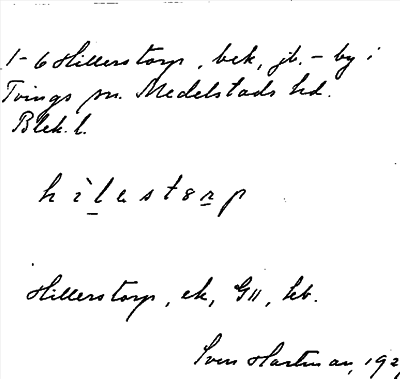 1-6 Hillerstorp, bek, jb. - by i
Tvings sn. Medelstads hd.
Blek. l.
Hillerstorp, ek, G11, kb.
Sven Hartman, 192